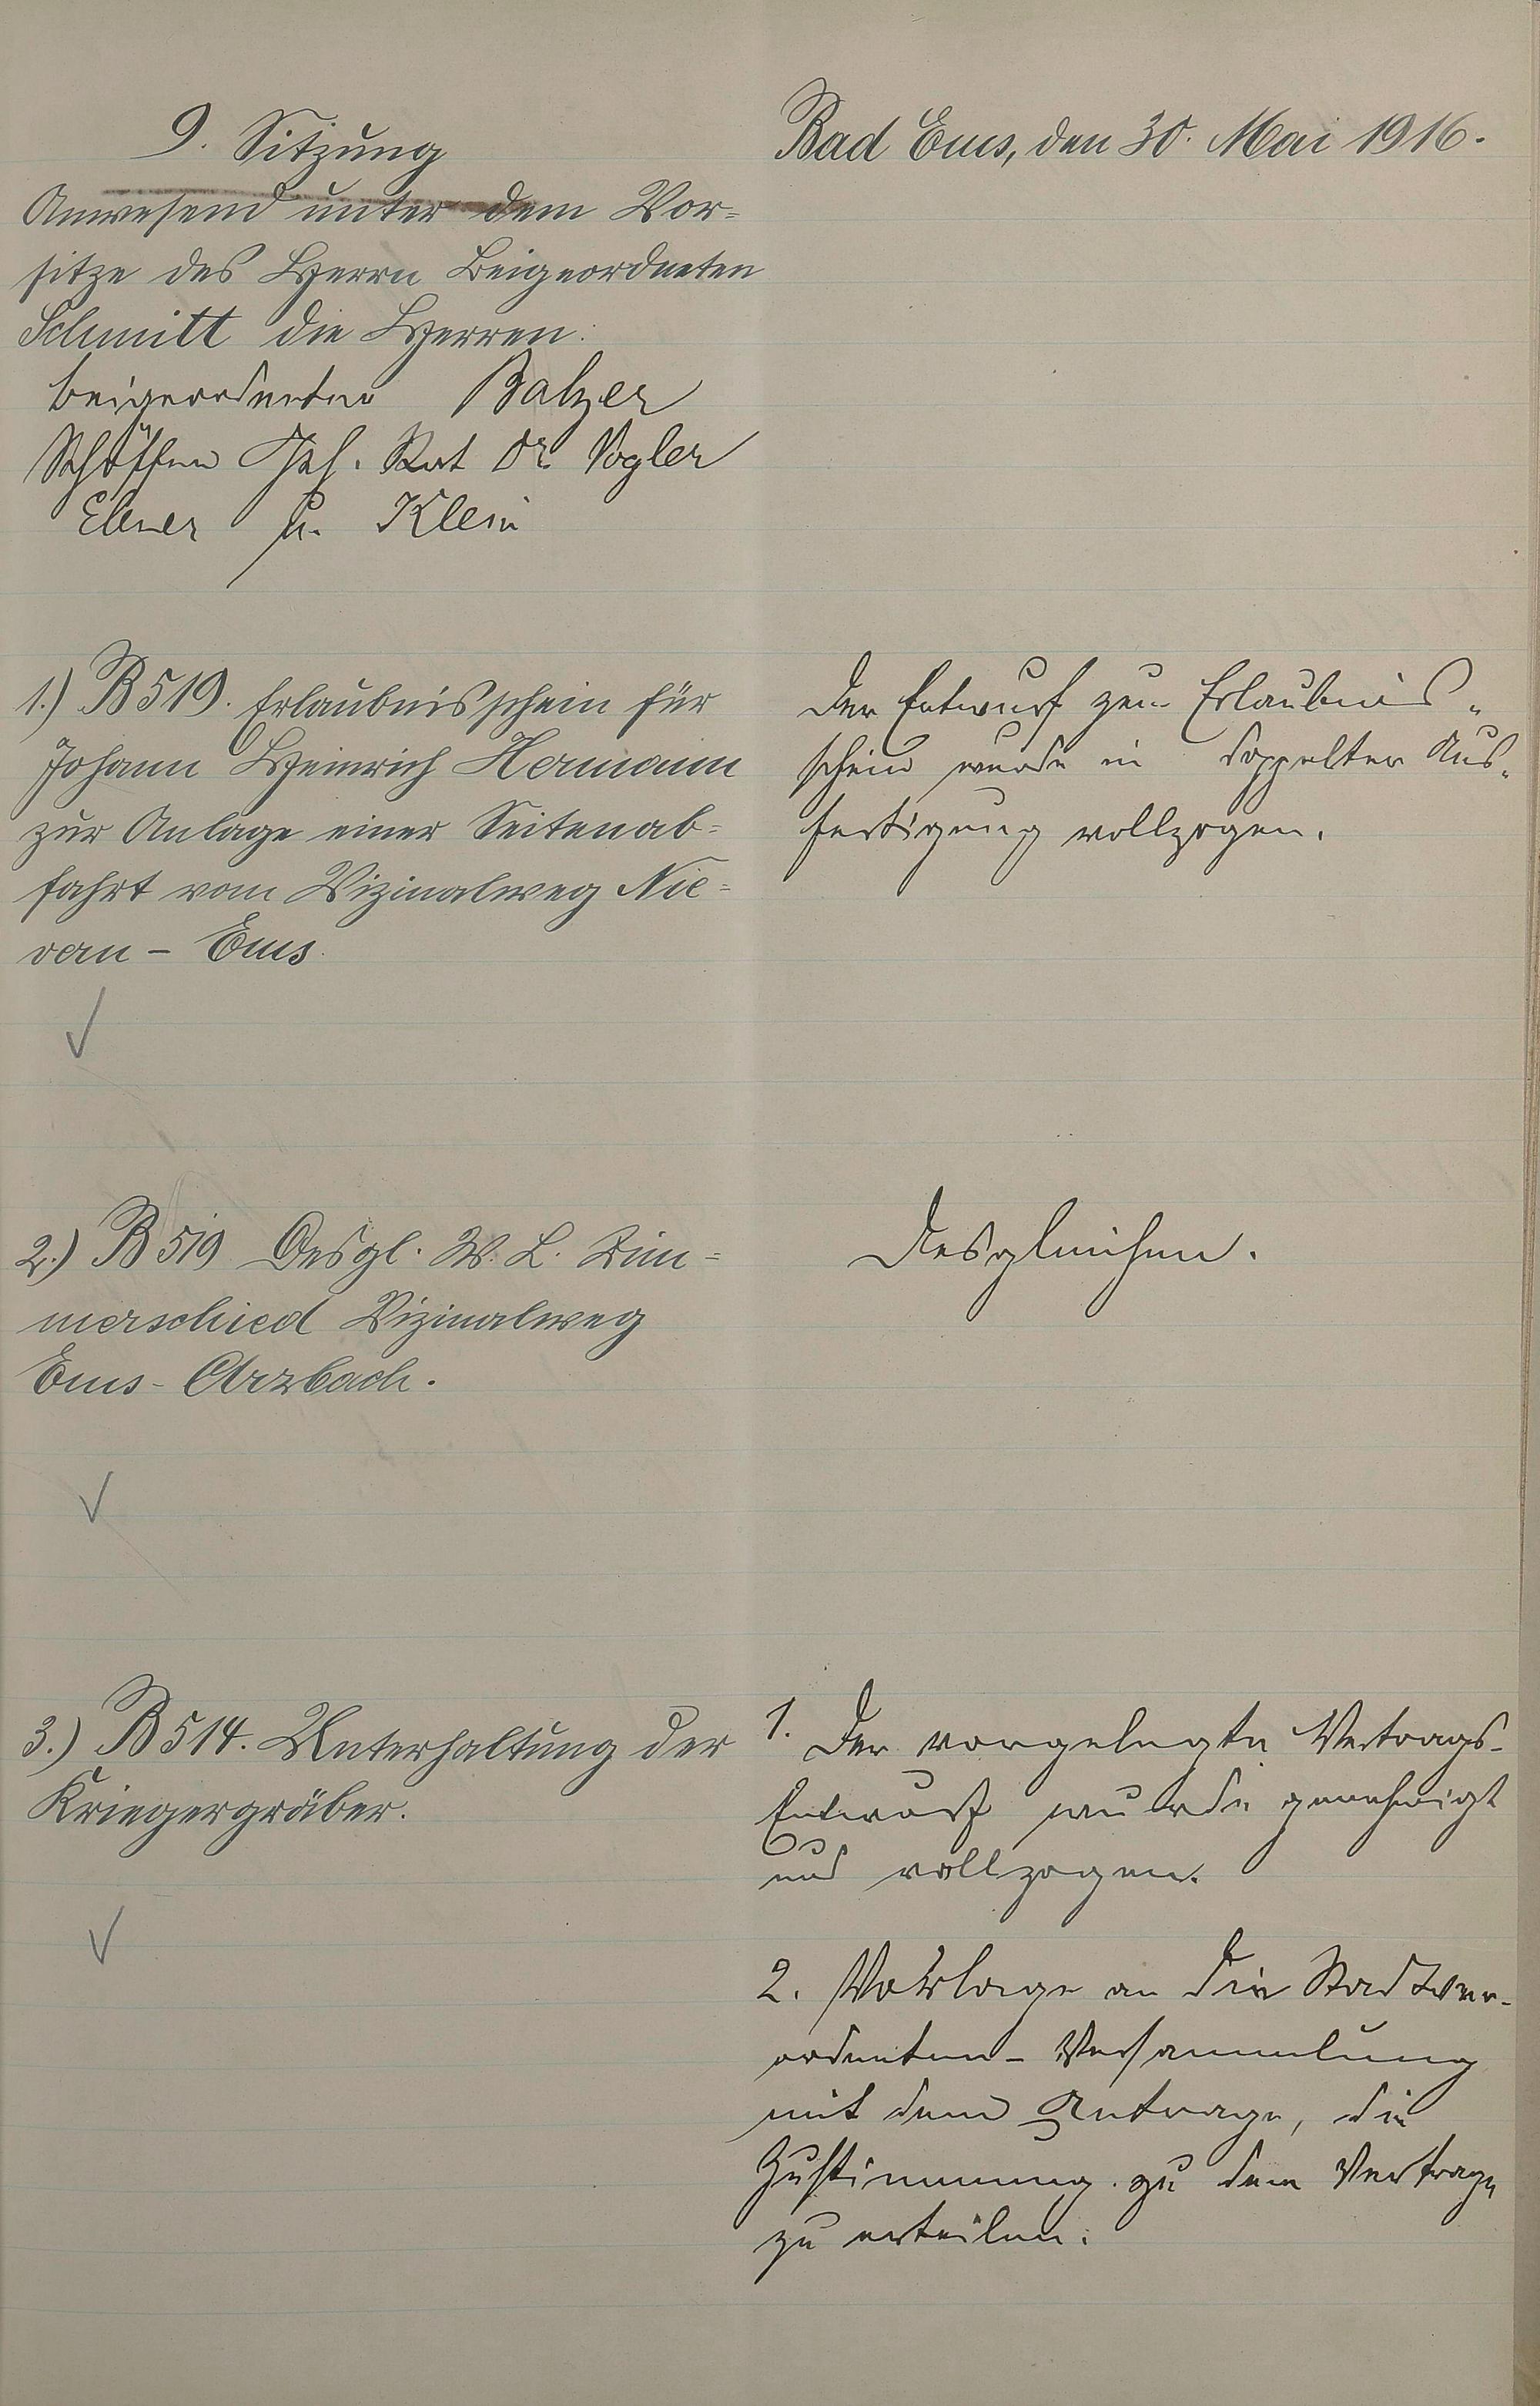 9. Sitzung
Bad Ems, den 30. Mai 1916.
Anwesend unter dem Vor=
sitze des Herrn Beigeordneten
Schmitt die Herren:
Beigeordneter Balzer
Schöffen Geh. Rat Dr. Vogler
Ebner u. Klein
1.) B 519. Erlaubnisschein für
Johann Heinrich Hermann
zur Anlage einer Seitenab=
fahrt vom Vizinalweg Nie=
vern - Ems.
Der Entwurf zum Erlaubnis-
schein wurde in doppelter Aus-
fertigung vollzogen.
2.) B 519 Desgl. W. L. Zim=
merschied Vizinalweg
Ems - Arzbach.
Desgleichen.
3.) B 514. Unterhaltung der
Kriegergräber.
1. Der vorgelegte Vertrags-
Entwurf wurde genehmigt
und vollzogen.
2. Vorlage an die Stadtver-
ordneten-Versammlung
mit dem Antrage, die
Zustimmung zu dem Vertrage
zu erteilen.